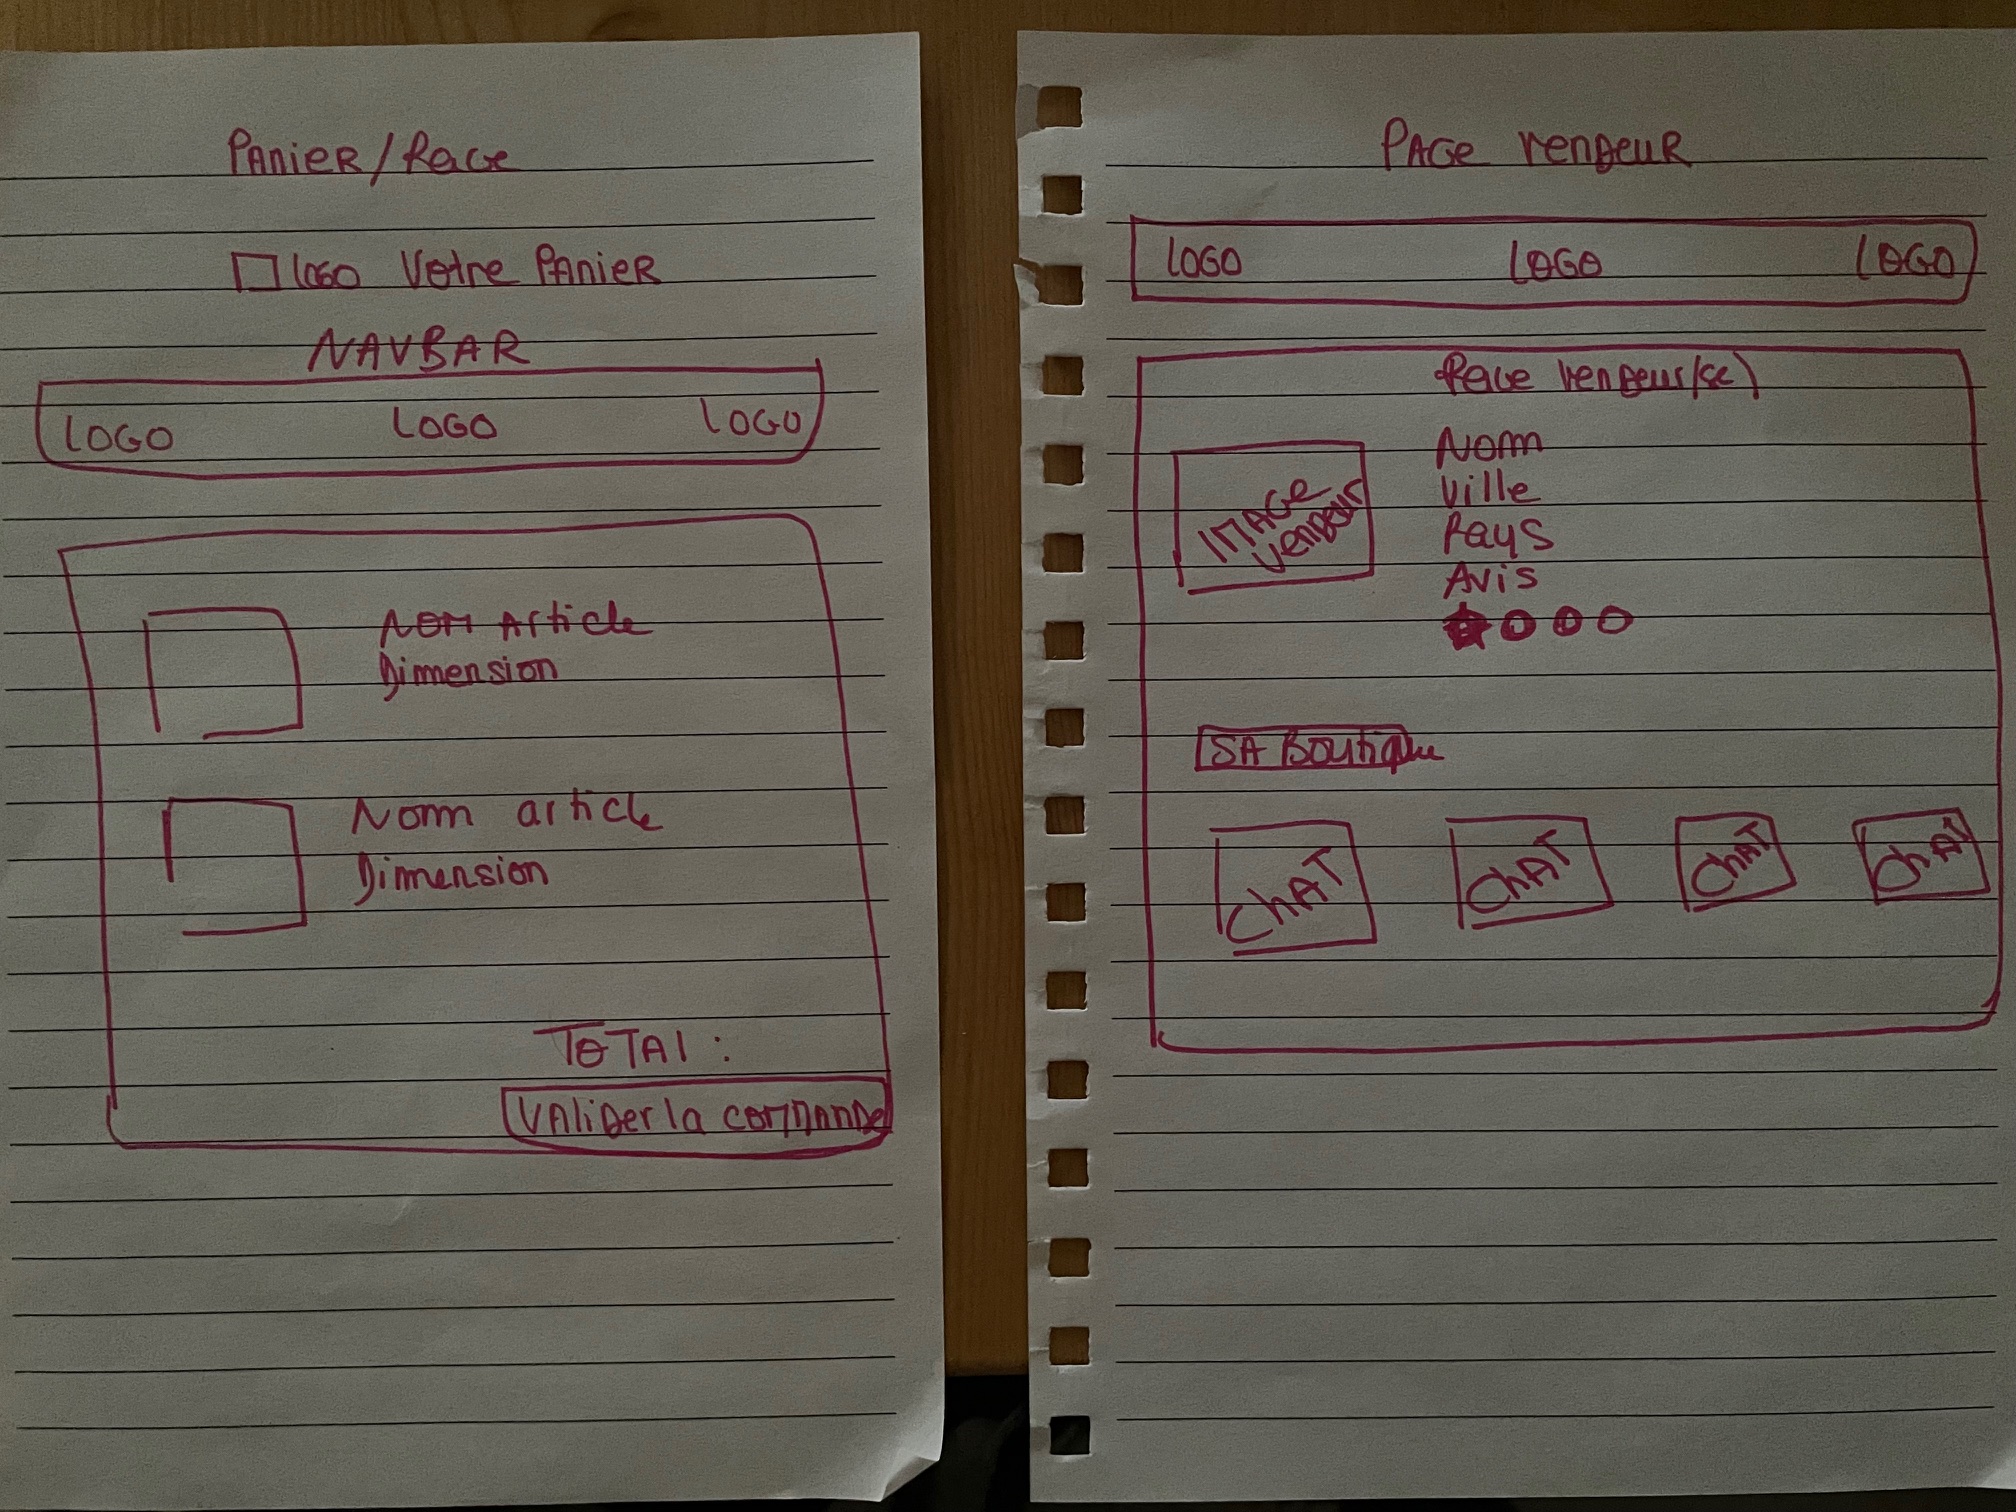 PANIER/PAGE
LOGO VOTRE PANIER
NAVBAR
LOGO LOGO LOGO
NOM ARTICLE
Dimension
Nom article
Dimension
TOTAL :
VALIDER la COMMANDE
PAGE VENDEUR
LOGO LOGO LOGO
Page vendeur(se)
NOM
Ville
Pays
AVIS
IMAGE
VENDEUR
SA Boutique
CHAT CHAT CHAT CHAT